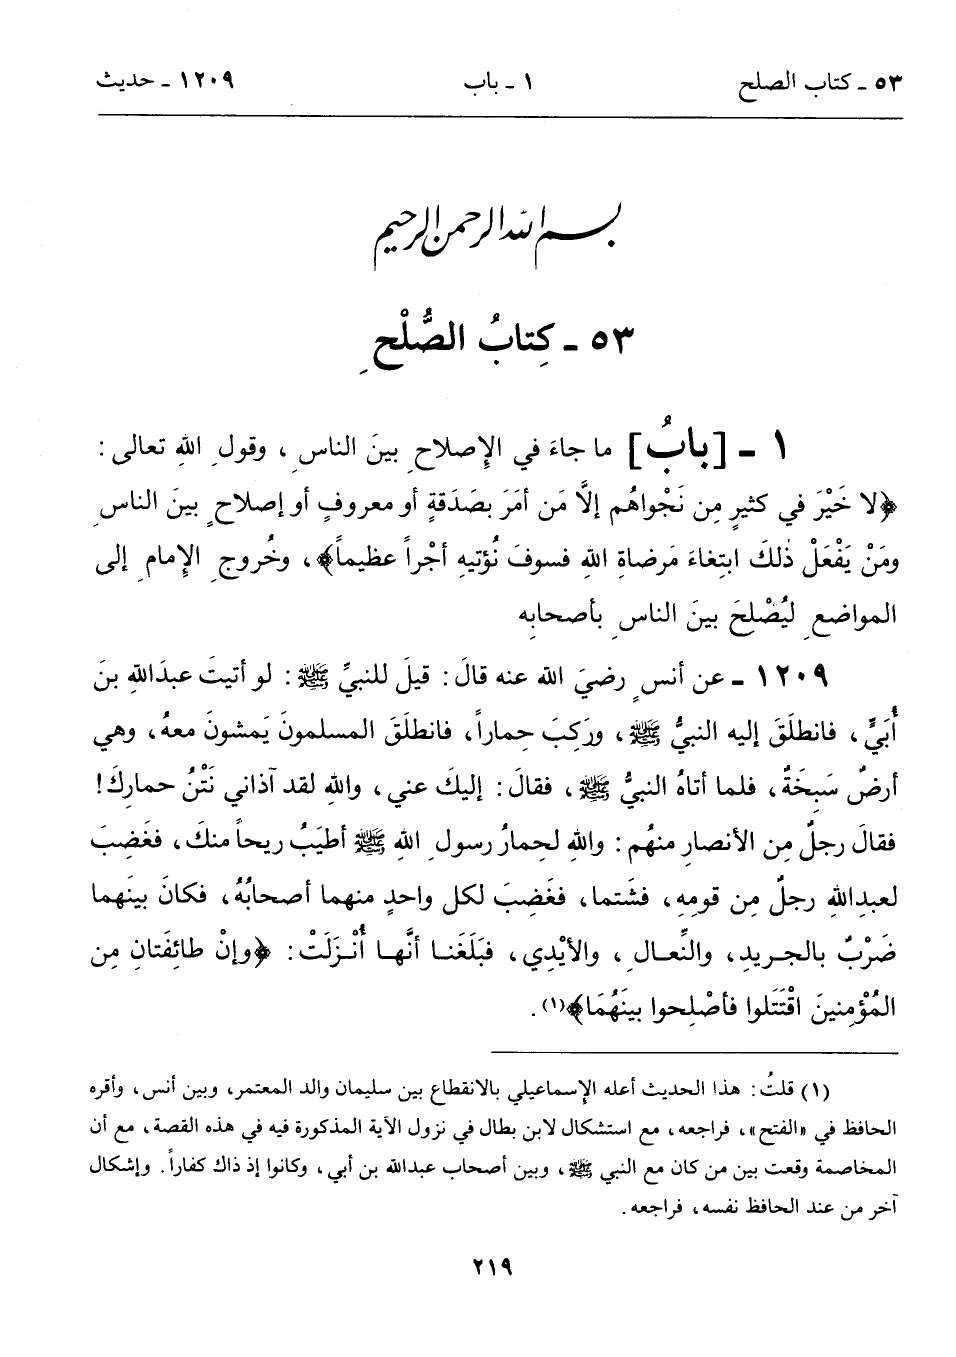 ٥٣ ـ كتاب الصلح ١ ـ باب ١٢٠٩ ـ حديث
بسم الله الرحمن الرحيم
٥٣ ـ كِتابُ الصُّلْحِ
١ ـ [بابُ] ما جاءَ في الإصلاحِ بينَ الناسِ، وقولِ اللهِ تعالى:
﴿لا خَيْرَ في كثيرٍ مِن نَجْواهُم إلَّا مَن أمَرَ بصَدَقةٍ أو معروفٍ أو إصلاحٍ بينَ الناسِ
ومَنْ يَفْعَلْ ذٰلكَ ابتِغاءَ مَرضاةِ اللهِ فسوفَ نُؤتيهِ أجْراً عظيماً﴾، وخُروجِ الإمامِ إلى
المواضعِ ليُصْلِحَ بينَ الناسِ بأصحابِه
١٢٠٩ ـ عن أنسٍ رضيَ الله عنه قالَ: قيلَ للنبيِّ ﷺ: لو أتيتَ عبدَاللهِ بنَ
أُبَيٍّ، فانطلَقَ إليه النبيُّ ﷺ، ورَكِبَ حِماراً، فانطلَقَ المسلمونَ يَمشونَ معهُ، وهي
أرضٌ سَبِخَةٌ، فلما أتاهُ النبيُّ ﷺ، فقالَ: إليكَ عني، واللهِ لقد آذاني نَتْنُ حمارِكَ!
فقالَ رجلٌ مِن الأنصارِ منهُم: واللهِ لحِمارُ رسولِ اللهِ ﷺ أطيَبُ ريحاً منكَ، فغَضِبَ
لعبدِاللهِ رجلٌ مِن قومِهِ، فشَتما، فغَضِبَ لكل واحدٍ منهما أصحابُهُ، فكانَ بينَهما
ضَرْبٌ بالجريدِ، والنِّعالِ، والأيْدِي، فبَلَغَنا أنَّها أُنْزَلَتْ: ﴿وإنْ طائِفَتانِ مِن
المُؤْمِنينَ اقْتَتَلوا فأصْلِحوا بينَهُمَا﴾(١).
(١) قلتُ: هذا الحديث أعله الإسماعيلي بالانقطاع بين سليمان والد المعتمر، وبين أنس، وأقره
الحافظ في «الفتح»، فراجعه، مع استشكال لابن بطال في نزول الآية المذكورة فيه في هذه القصة، مع أن
المخاصمة وقعت بين من كان مع النبي ﷺ، وبين أصحاب عبدالله بن أبي، وكانوا إذ ذاك كفاراً. وإشكال
آخر من عند الحافظ نفسه، فراجعه.
٢١٩